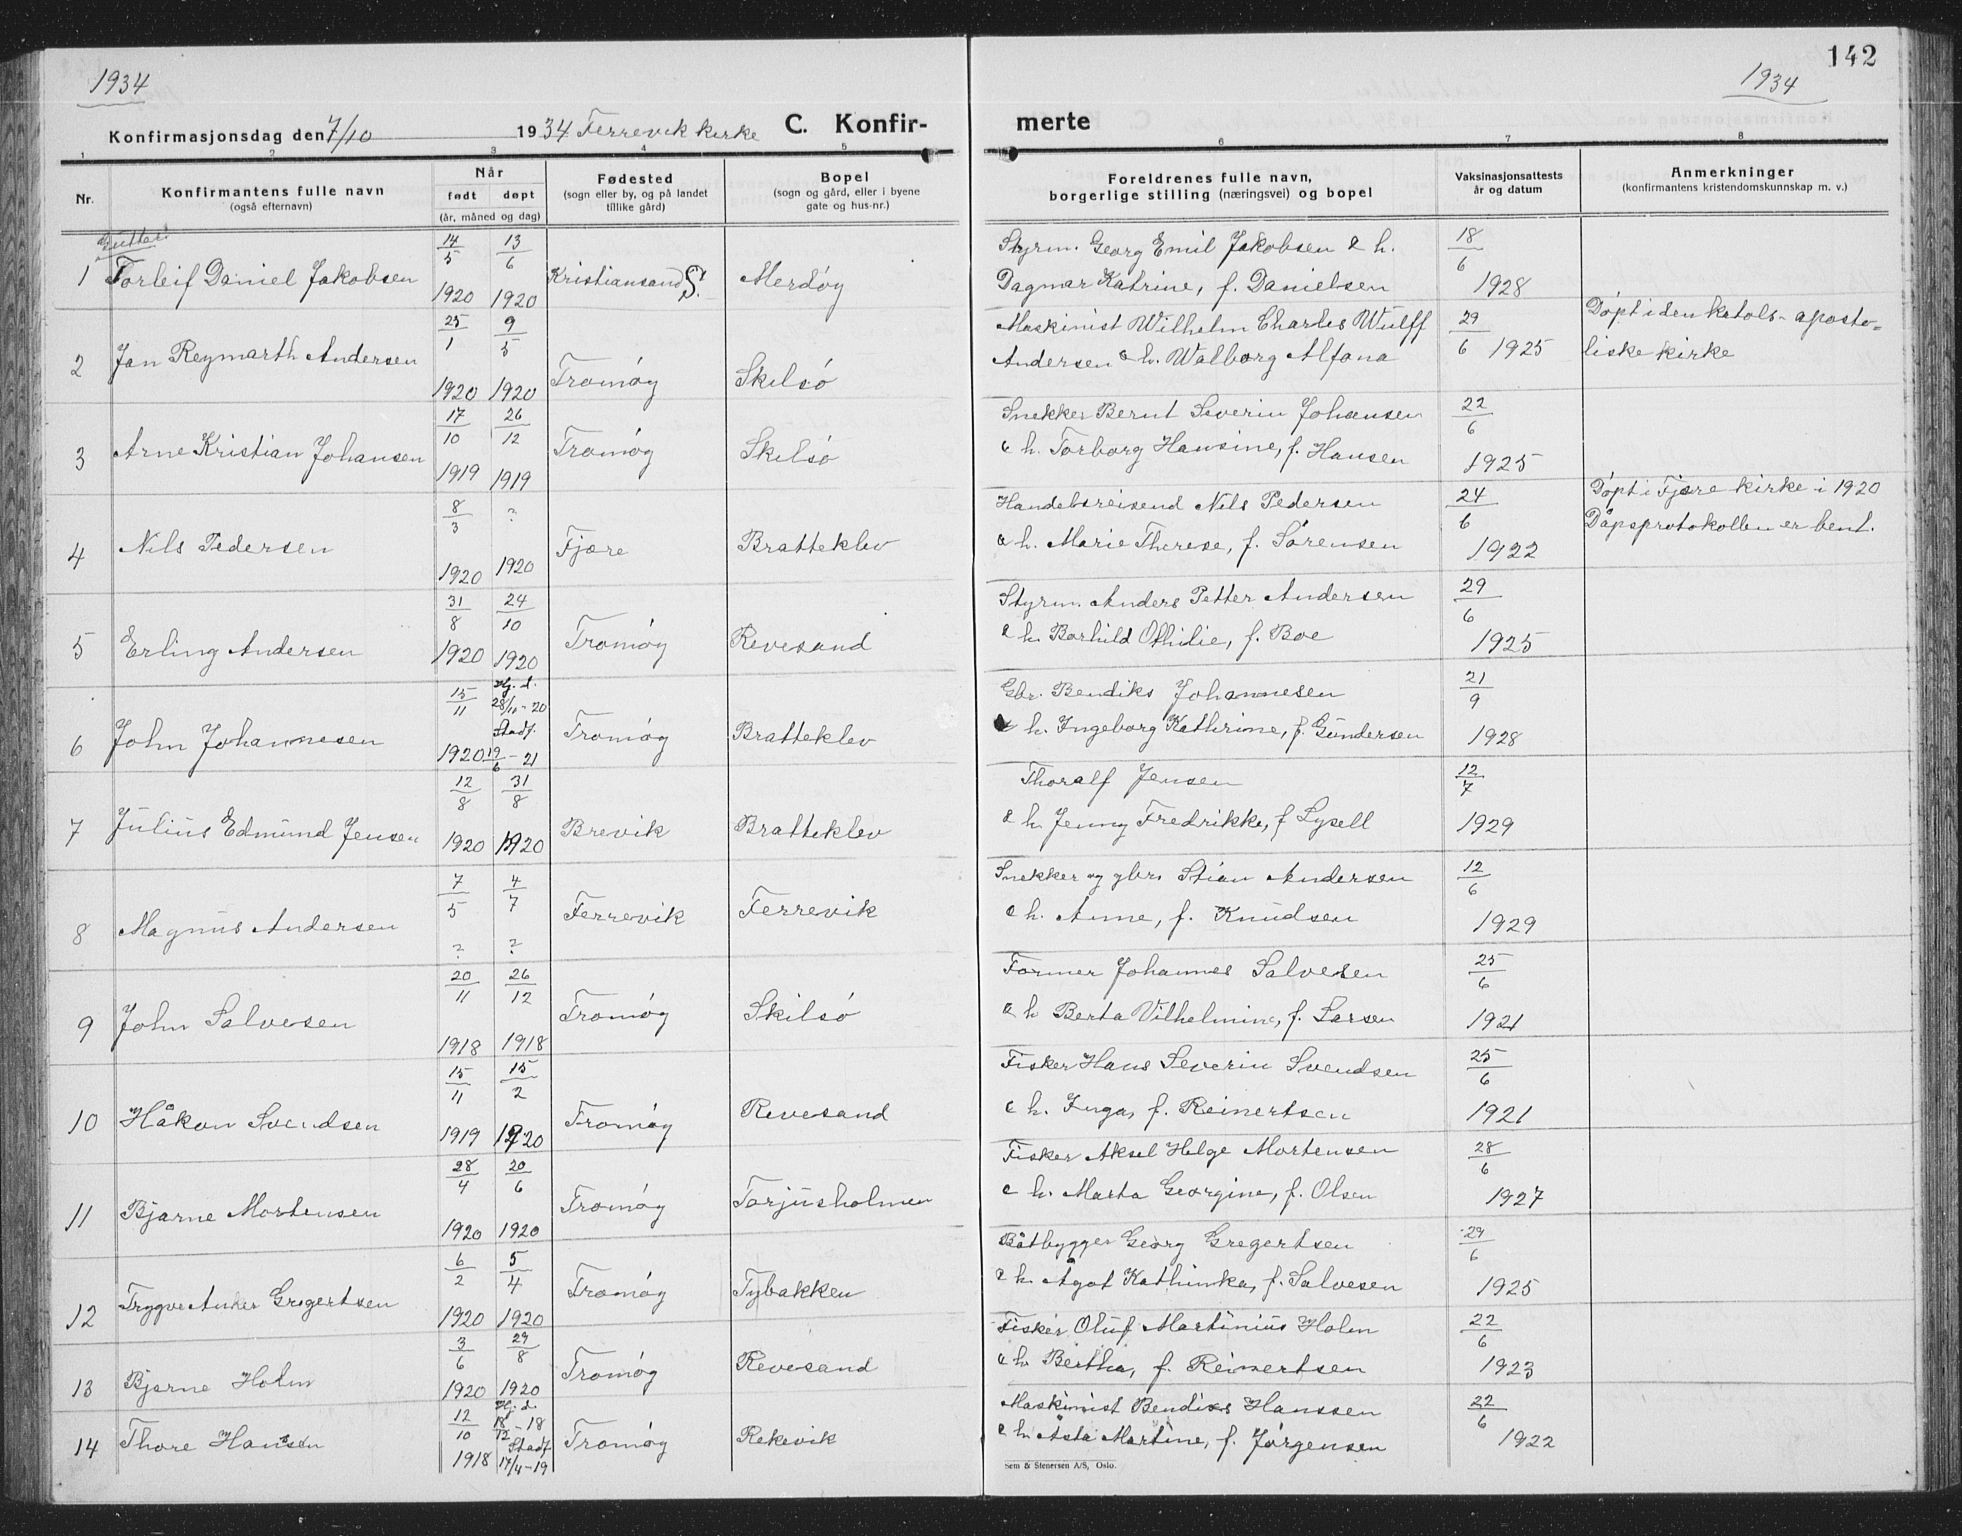 1934
142
1934
Konfirmasjonsdag den 7/10 1934 Færrevik kirke C. Konfir-
merte
1 2 3 4 5 6 7 8
Nr. Konfirmantens fulle navn (også efternavn) Når født døpt (år, måned og dag) Fødested (sogn eller by, og på landet tillike gård) Bopel (sogn og gård, eller i byene gate og hus-nr.) Foreldrenes fulle navn, borgerlige stilling (næringsvei) og bopel Vaksinasjonsattests år og datum Anmerkninger (konfirmantens kristendomskunnskap m. v.)
Gutter:
1 Torleif Daniel Jakobsen 14/5 1920 13/6 1920 Kristiansand S. Merdøy Styrm. Georg Emil Jakobsen & h. Dagmar Katrine, f. Danielsen 18/6 1928
2 Jan Reymarth Andersen 25/1 1920 9/5 1920 Tromøy Skilsø Maskinist Wilhelm Charles Wulff Andersen & h. Walborg Alfona 29/6 1925 Døpt i den katols-aposto-liske kirke
3 Arne Kristian Johansen 17/10 1919 26/12 1919 Tromøy Skilsø Snekker Bernt Severin Johansen & h. Torborg Hansine, f. Hansen 22/6 1925
4 Nils Pedersen 8/3 1920 ? 1920 Fjære Bratteklev Handelsreisend Nils Pedersen & h. Marie Therese, f. Sørensen 24/6 1922 Døpt i Fjære kirke i 1920 Dåpsprotokollen er bent.
5 Erling Andersen 31/8 1920 24/10 1920 Tromøy Revesand Styrm. Anders Petter Andersen & h. Borhild Othilie, f. Boe 29/6 1925
6 John Johannesen 15/11 1920 Hj. d. 28/11-20 Stadf. 19/6-21 Tromøy Bratteklev Gbr. Bendiks Johannesen & h. Ingeborg Kathrine, f. Gundersen 21/9 1928
7 Julius Edmund Jensen 12/8 1920 31/8 1920 Brevik Bratteklev Thoralf Jensen & h. Jenny Fredrikke, f Lysell 12/7 1929
8 Magnus Andersen 7/5 ? 4/7 ? Færrevik Færrevik Snekker og gbr. Stian Andersen & h. Anne, f. Knudsen 12/6 1929
9 John Salvesen 20/11 1918 26/12 1918 Tromøy Skilsø Former Johannes Salvesen & h Berta Vilhelmine, f. Larsen 25/6 1921
10 Håkon Svendsen 15/11 1919 15/2 1920 Tromøy Revesand Fisker Hans Severin Svendsen & h. Inga, f. Reinertsen 25/6 1921
11 Bjarne Mortensen 28/4 1920 20/6 1920 Tromøy Torjusholmen Fisker Aksel Helge Mortensen & h. Marta Georgine, f. Olsen 28/6 1927
12 Trygve Anker Gregertsen 6/2 1920 5/4 1920 Tromøy Tybakken Båtbygger Georg Gregertsen & h. Ågot Kathinka, f. Salvesen 29/6 1925
13 Bjarne Holm 3/6 1920 29/8 1920 Tromøy Revesand Fisker Oluf Martinius Holm & h. Bertha, f. Reinertsen 22/6 1923
14 Thore Hansen 12/10 1918 Hj. d. 18/12-18 Stadf 17/4-19 Tromøy Rekevik Maskinist Bendixs Hanssen & h. Asta Martine, f. Jørgensen 22/6 1922
Sem & Stenersen A/S, Oslo.